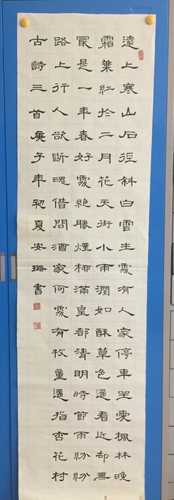 遠上寒山石徑斜白雲生處有人家停車坐愛楓林晚
霜葉紅於二月花天街小雨潤如酥草色遥看近却無
最是一年春好處絶勝煙柳滿皇都清明時節雨紛紛
路上行人欲斷魂借問酒家何處有牧童遥指杏花村
古詩三首庚子年初夏安璐書